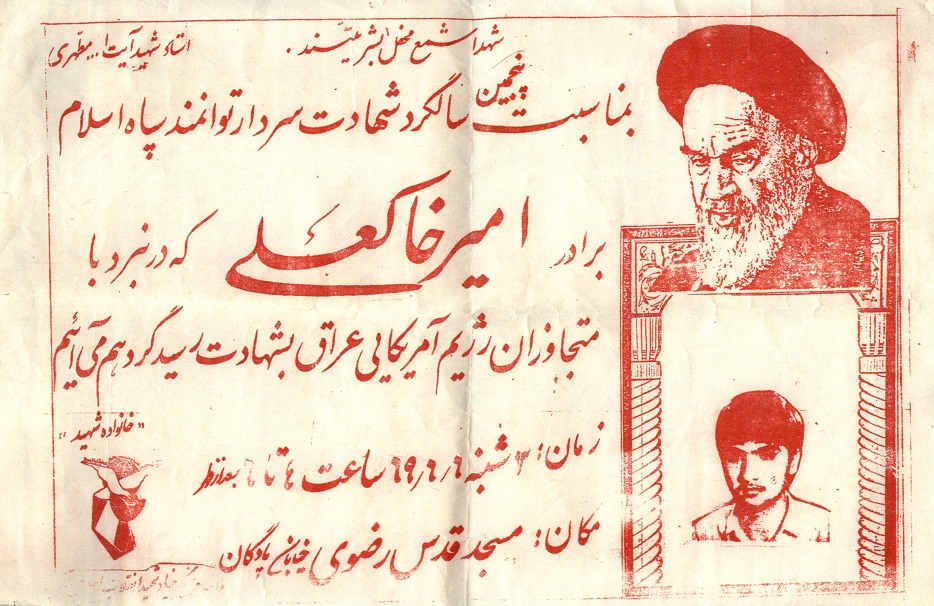 شهدا شمع محفل بشریتند. استاد شهید آیت ا... مطهری)
بمناسبت پنجمین سالگرد شهادت سردار توانمند سپاه اسلام
برادر امیر خاکعلی که در نبرد با
متجاوزان رژیم آمریکایی عراق بشهادت رسید گردهم می‌آئیم
زمان: ۳ شنبه ۶۹٫۶٫۶ ساعت ۴ تا ۶ بعدازظهر
مکان: مسجد قدس رضوی خیابان پادگان
«خانواده شهید»